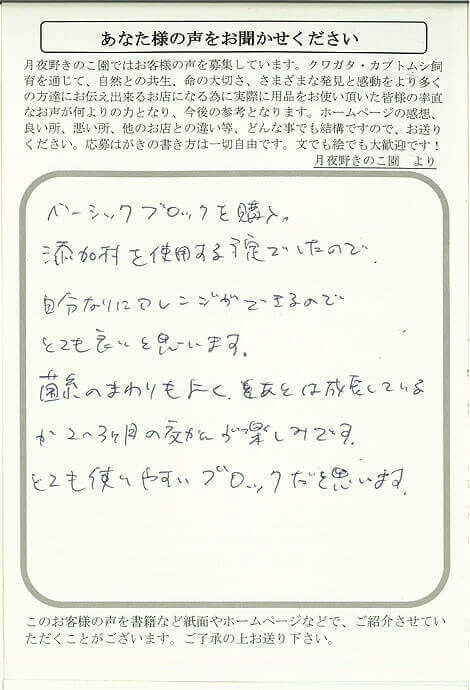 あなた様の声をお聞かせください
月夜野きのこ園ではお客様の声を募集しています。クワガタ・カブトムシ飼
育を通じて、自然との共生、命の大切さ、さまざまな発見と感動をより多く
の方達にお伝え出来るお店になる為に実際に用品をお使い頂いた皆様の率直
なお声が何よりの力となり、今後の参考となります。ホームページの感想、
良い所、悪い所、他のお店との違い等、どんな事でも結構ですので、お送り
ください。応募はがきの書き方は一切自由です。文でも絵でも大歓迎です!
月夜野きのこ園 より
ベーシックブロックを購入。
添加材を使用する予定でしたので、
自分なりにアレンジができるので
とても良いと思います。
菌糸のまわりもよく、 は成長している
か2〜3ヶ月の交かんが楽しみです。
とても使いやすいブロックだと思います。
このお客様の声を書籍など紙面やホームページなどで、ご紹介させてい
ただくことがございます。ご了承の上お送り下さい。